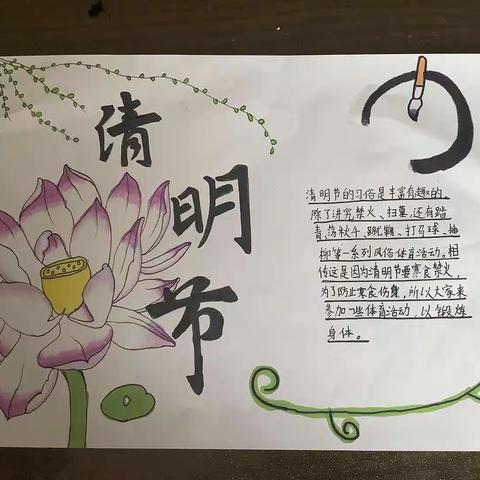 清明节
清明节的习俗是丰富有趣的,
除了讲究禁火、扫墓,还有踏
青、荡秋千、蹴鞠、打马球、插
柳等一系列风俗体育活动。相
传这是因为清明节要寒食禁火,
为了防止寒食伤身,所以大家来
参加一些体育活动,以锻炼
身体。